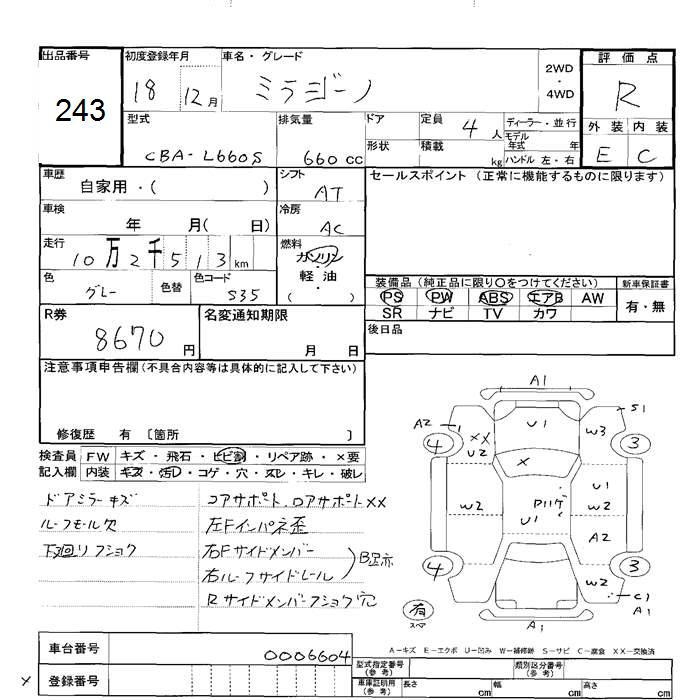 出品番号 初度登録年月 車名・グレード 2WD ・ 4WD 評価点
243 18 12月 ミラジーノ R
型式 排気量 ドア 定員 4人 ディーラー・並行 外装 内装
形状 積載 kg モデル年式 年
CBA-L660S 660cc ハンドル 左・右 E C
車歴 自家用・( ) シフト AT セールスポイント (正常に機能するものに限ります)
車検 年 月( 日) 冷房 AC
走行 10万2千513km 燃料 ガソリン・軽油・( )
色 グレー 色替 色コード S35
装備品 (純正品に限り○をつけてください) 新車保証書
PS PW ABS エアB AW 有・無
SR ナビ TV カワ
R券 8670円 名変通知期限 月 日 後日品
注意事項申告欄 (不具合内容等は具体的に記入して下さい)
修復歴 有 〔箇所 〕
検査員 FW キズ・飛石・ヒビ割・リペア跡・×要
記入欄 内装 キズ・汚レ・コゲ・穴・スレ・キレ・破レ
ドアミラーキズ コアサポート,ロアサポートXX
ルーフモール欠 左Fインパネ歪
下廻リフショク 右Fサイドメンバー
右ルーフサイドレール
Rサイドメンバーフショク穴
A1
A2 1 S1
4 XX U2 U1 W3 3
X
W2 U1 U1 W2
A2
4 3
W2 C1 A1
有 スペア A1
A-キズ E-エクボ U-凹み W-補修跡 S-サビ C-腐食 XX-交換済
車台番号 0006604
型式指定番号 (参考) 類別区分番号 (参考)
× 登録番号
車庫証明用 (参考) 長さ cm 幅 cm 高さ cm